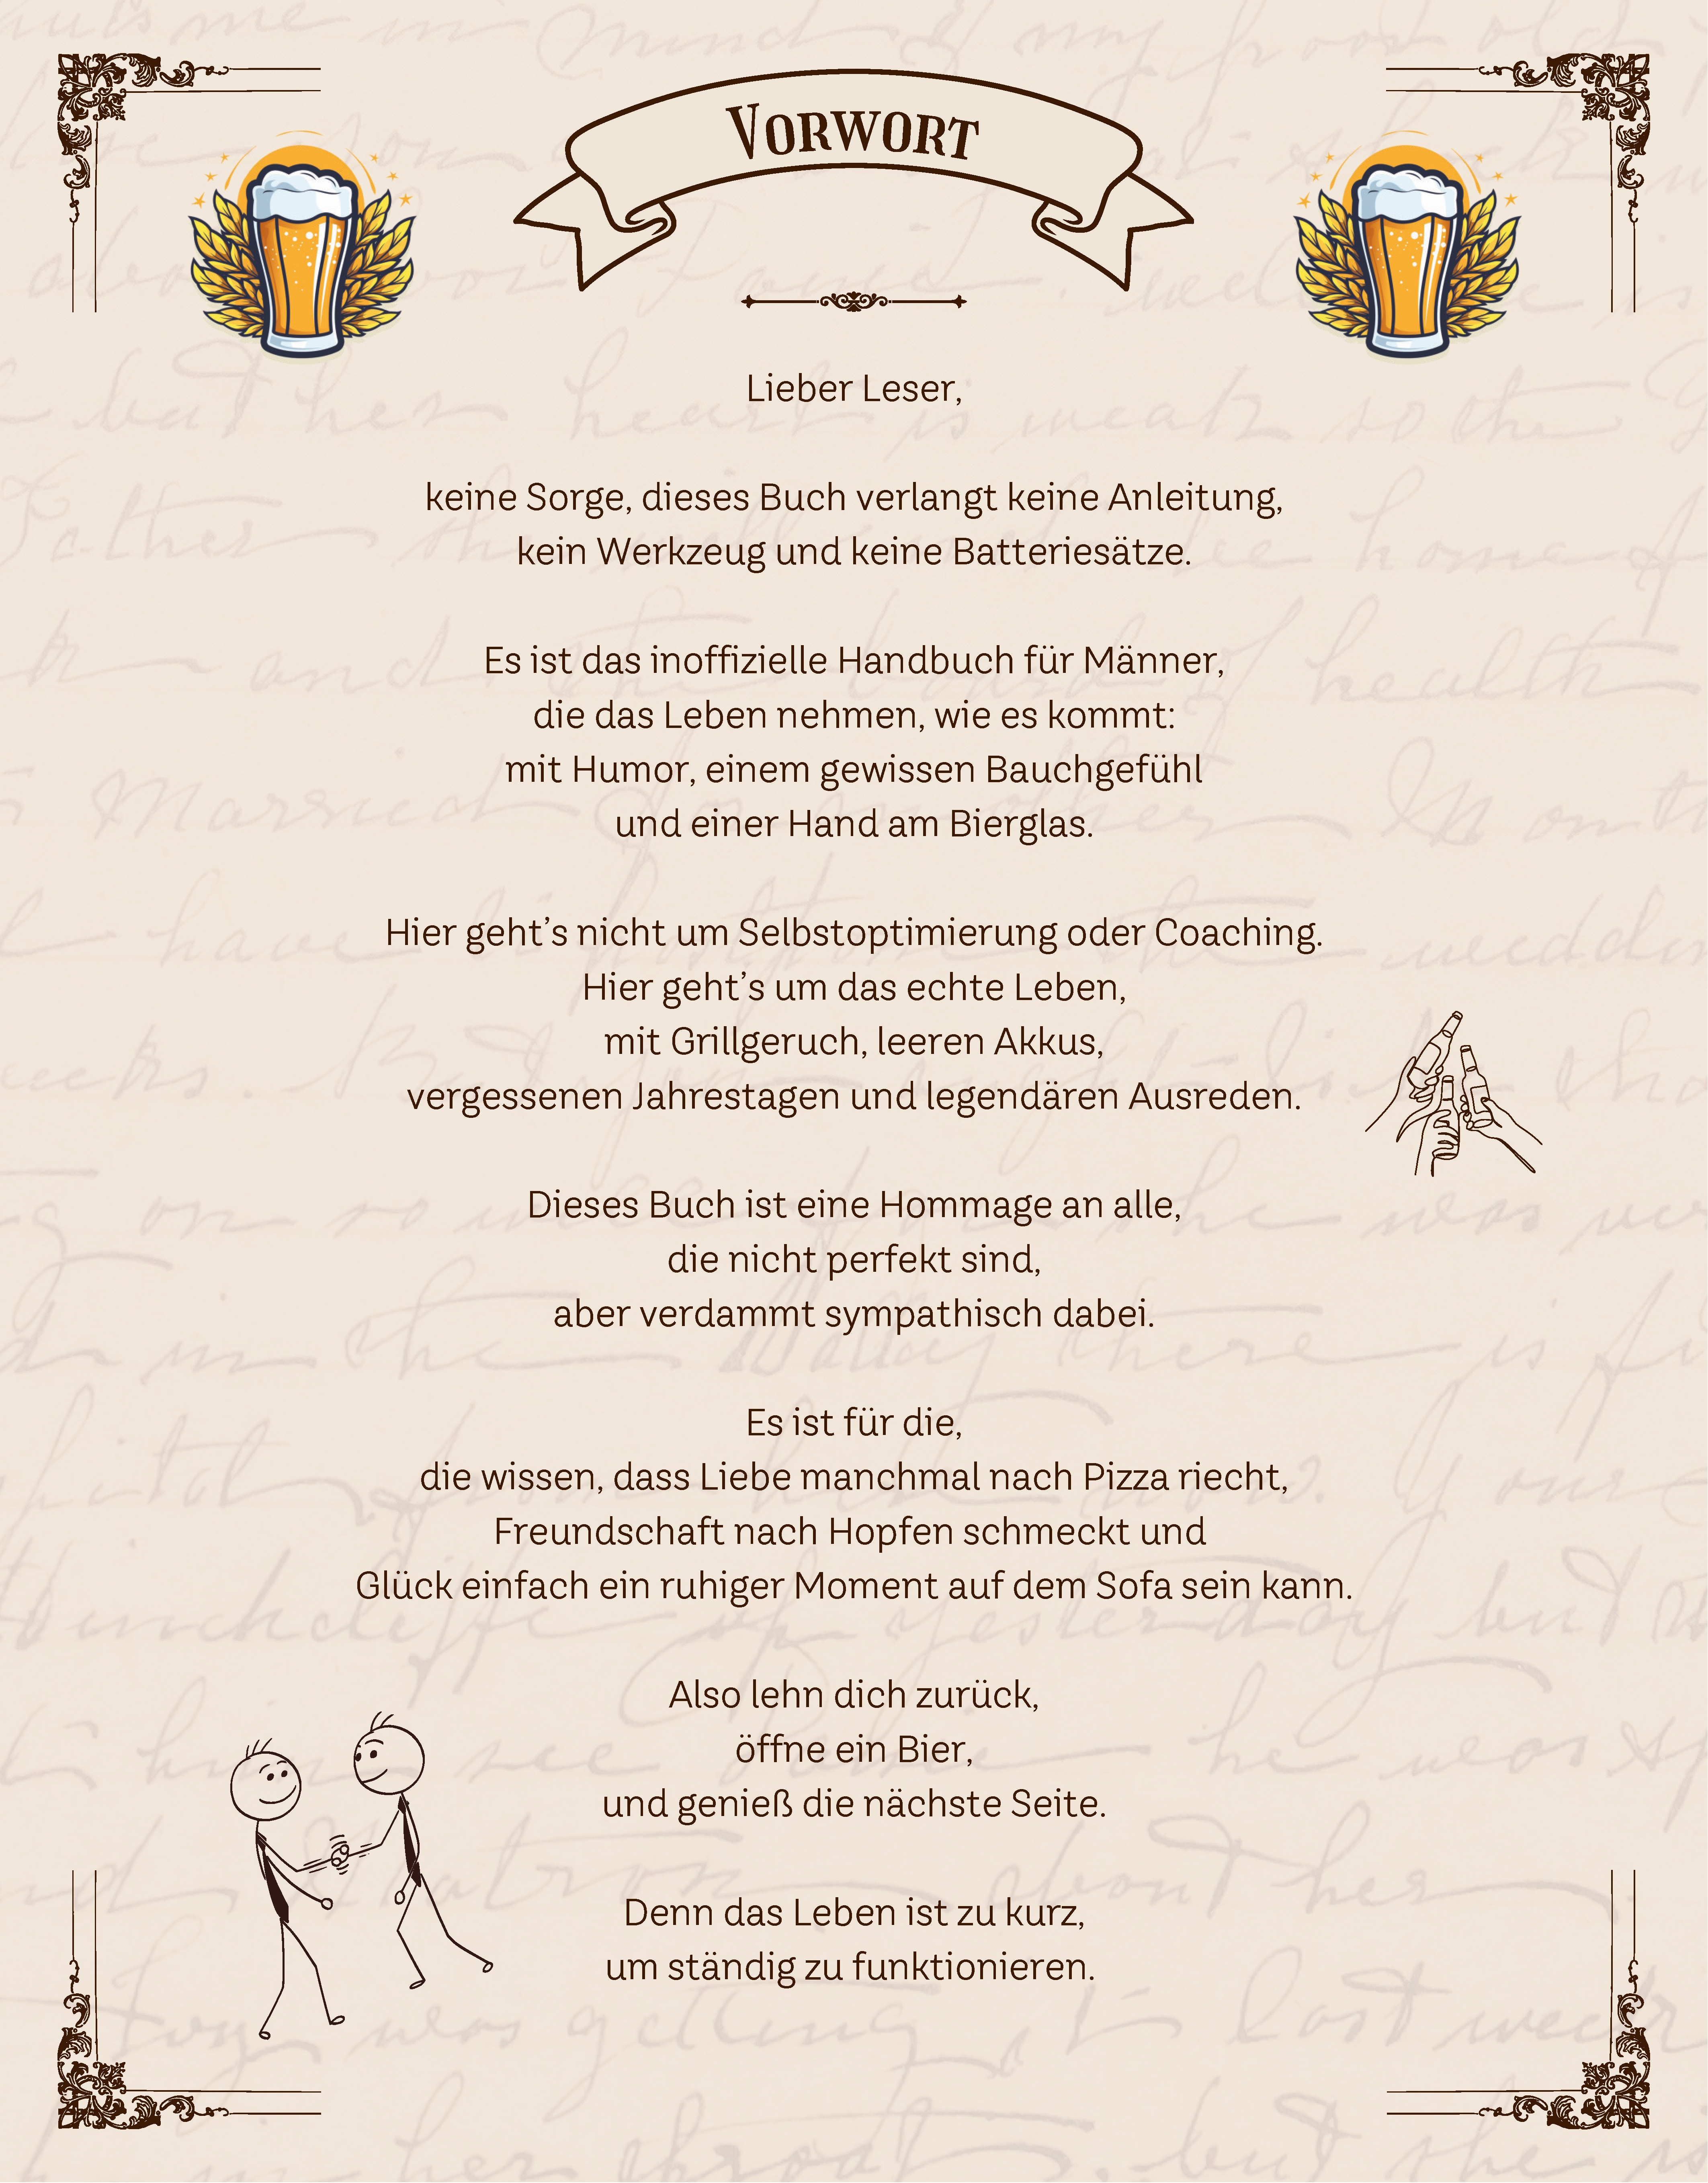 Vorwort
Lieber Leser,
keine Sorge, dieses Buch verlangt keine Anleitung,
kein Werkzeug und keine Batteriesätze.
Es ist das inoffizielle Handbuch für Männer,
die das Leben nehmen, wie es kommt:
mit Humor, einem gewissen Bauchgefühl
und einer Hand am Bierglas.
Hier geht’s nicht um Selbstoptimierung oder Coaching.
Hier geht’s um das echte Leben,
mit Grillgeruch, leeren Akkus,
vergessenen Jahrestagen und legendären Ausreden.
Dieses Buch ist eine Hommage an alle,
die nicht perfekt sind,
aber verdammt sympathisch dabei.
Es ist für die,
die wissen, dass Liebe manchmal nach Pizza riecht,
Freundschaft nach Hopfen schmeckt und
Glück einfach ein ruhiger Moment auf dem Sofa sein kann.
Also lehn dich zurück,
öffne ein Bier,
und genieß die nächste Seite.
Denn das Leben ist zu kurz,
um ständig zu funktionieren.